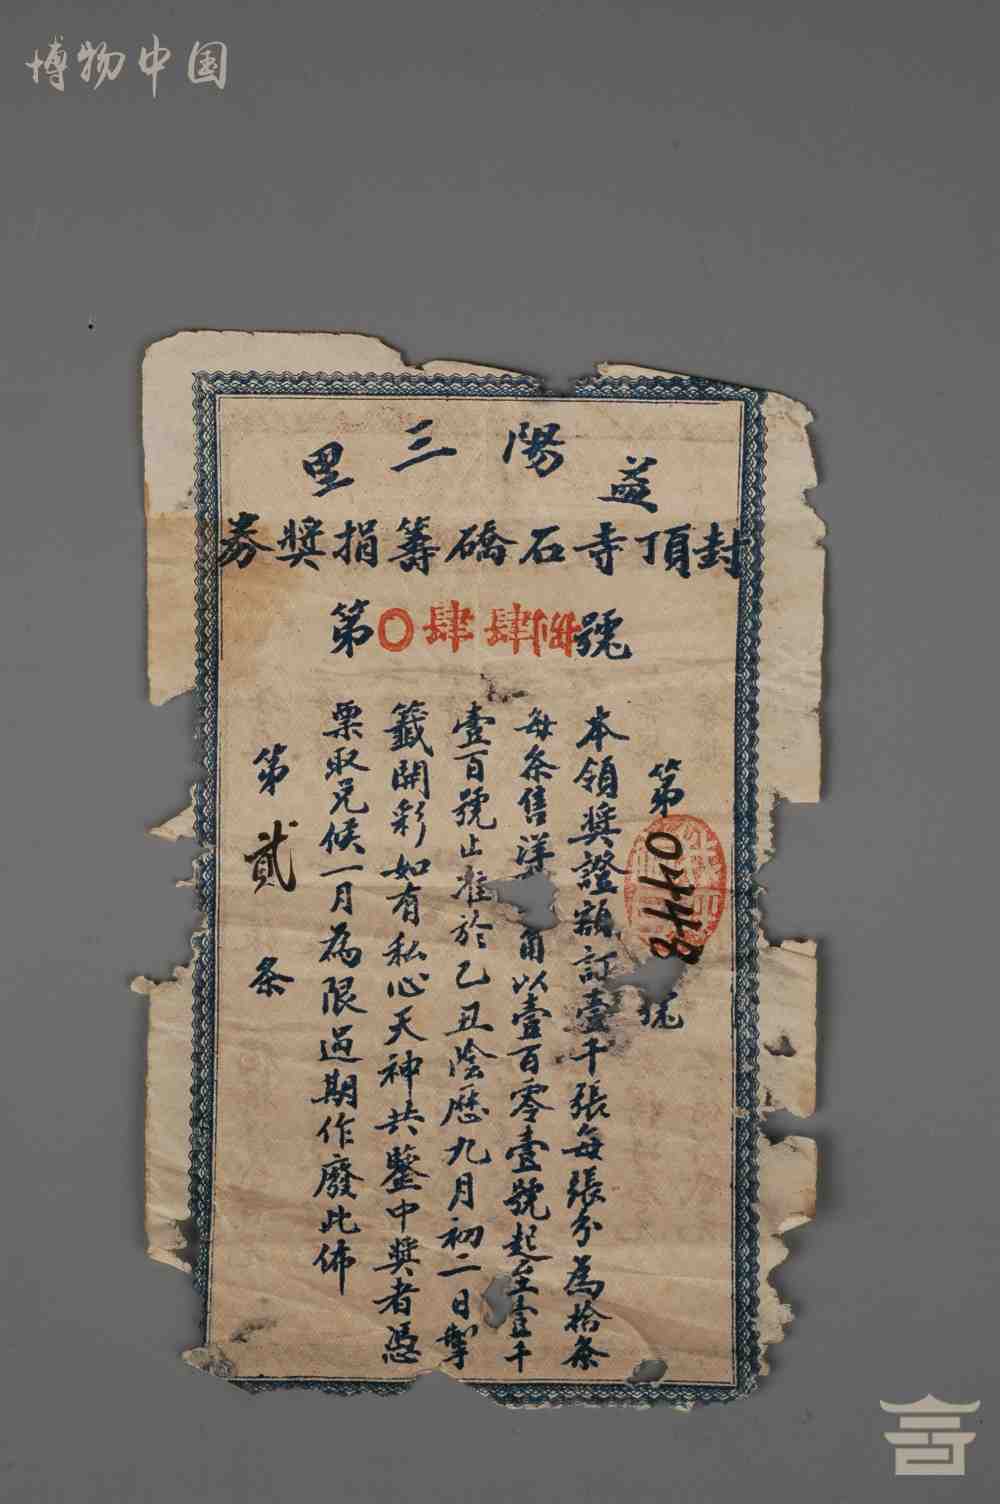 博物中国
益陽三里
封頂寺石礄籌捐獎券
第〇肆肆捌號
第0448號
本領獎證額訂壹千張每張分為拾条
每条售洋 角以壹百零壹號起至壹千
壹百號止准於乙丑陰歷九月初二日掣
籤開彩如有私心天神共鑒中獎者憑
票取兑候一月為限過期作廢此佈
第貳条